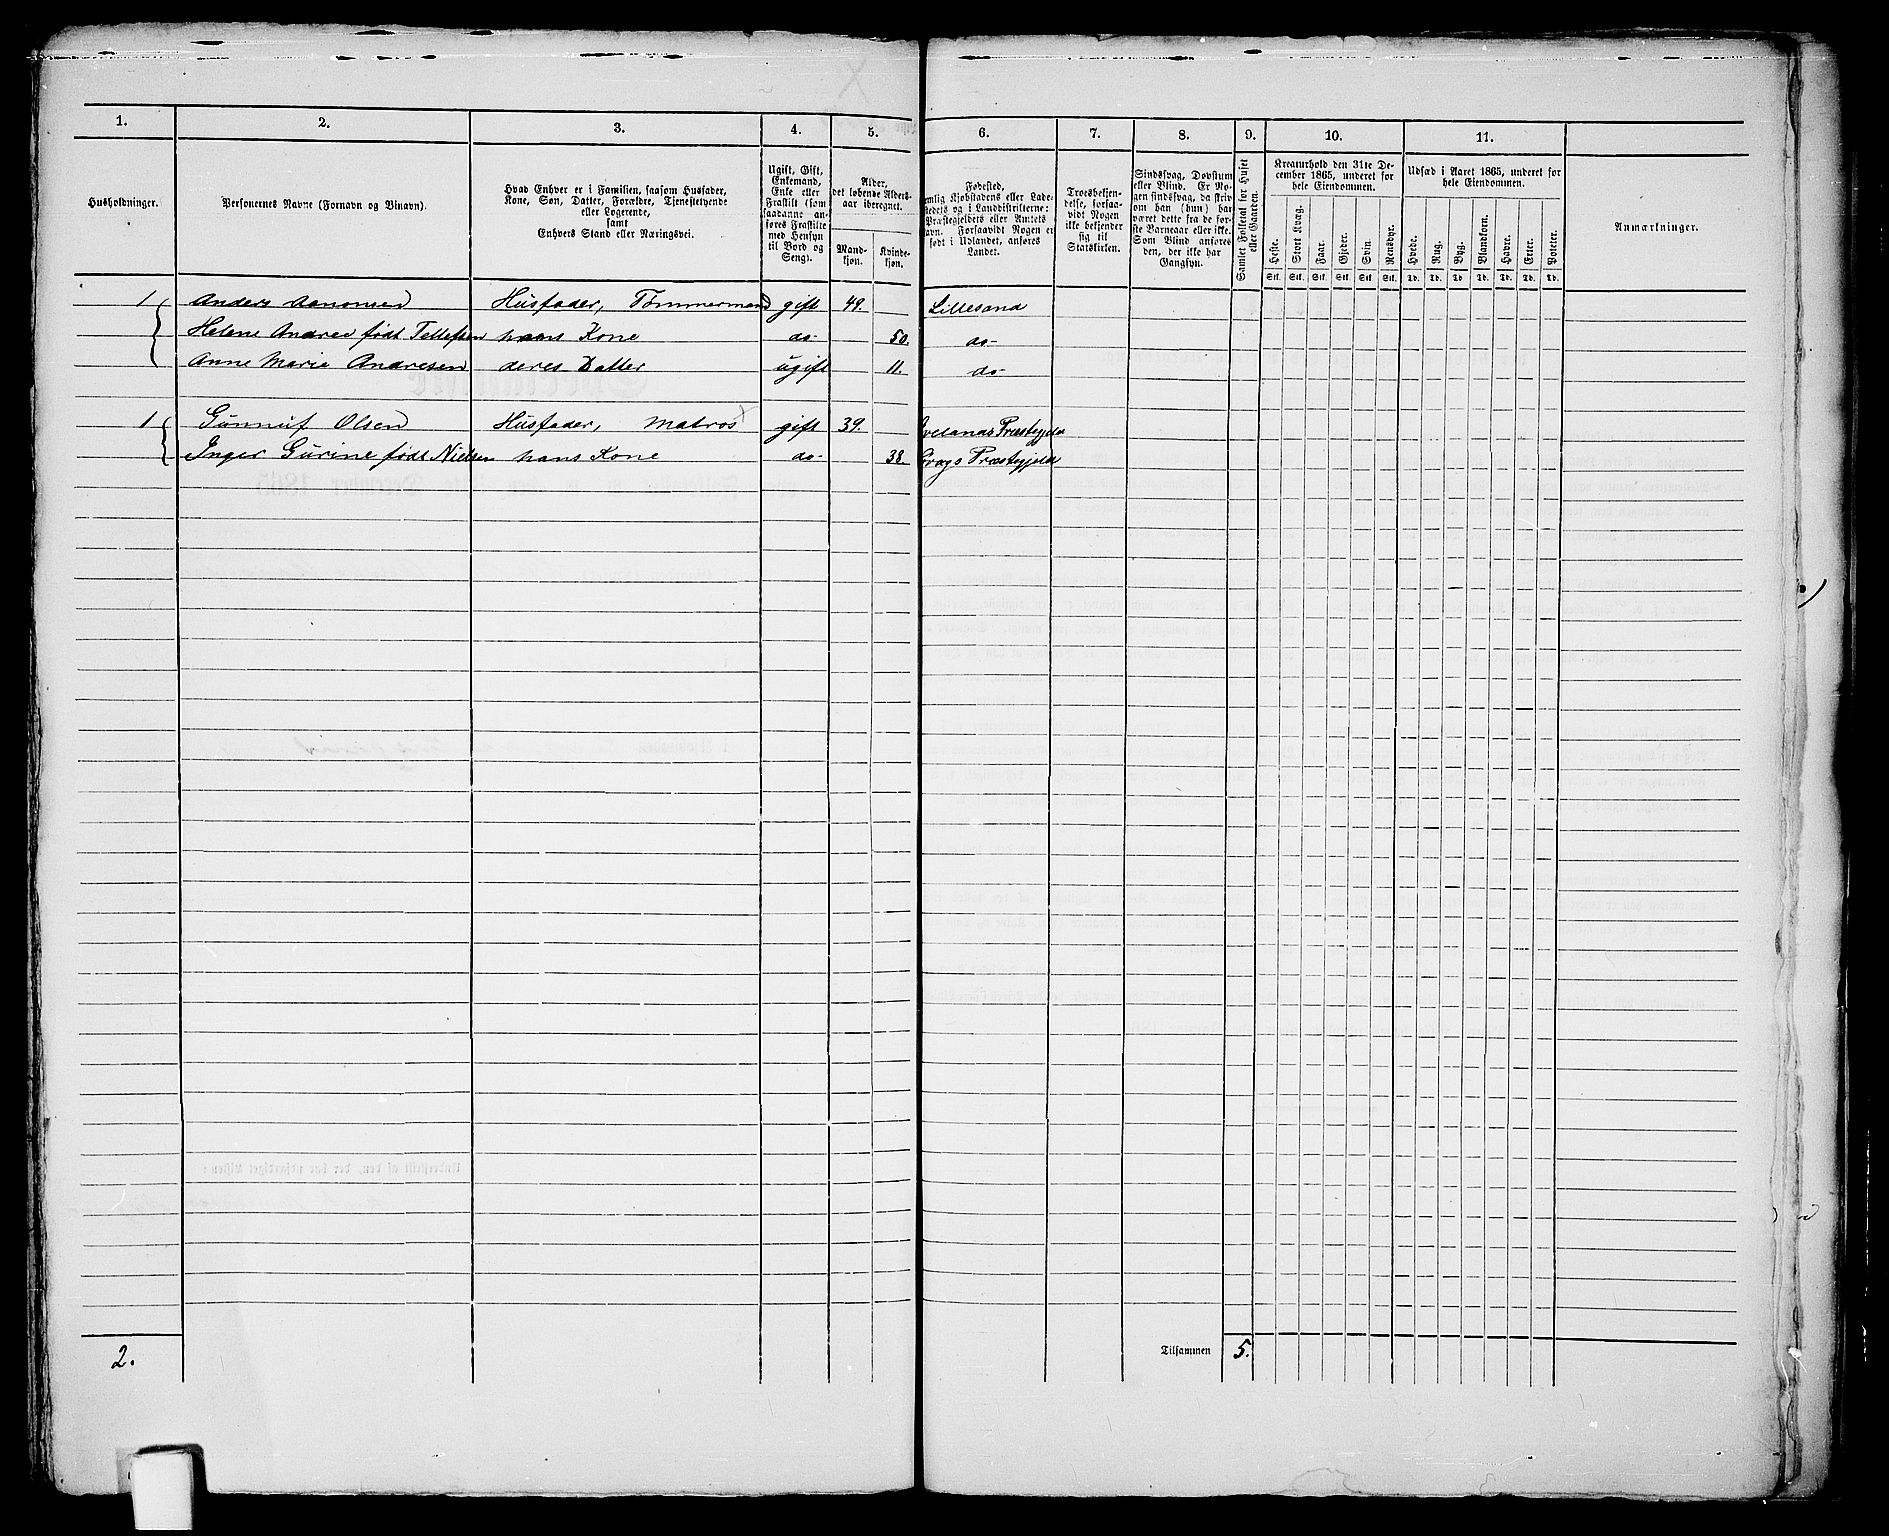 1. 2. 3. 4. 5. 6. 7. 8. 9. 10. 11.
Husholdninger.
Personernes Navne (Fornavn og Binavn).
Hvad Enhver er i Familien, saasom Husfader,
Kone, Søn, Datter, Forældre, Tjenestetyende
eller Logerende,
samt
Enhvers Stand eller Næringsvei.
Ugift, Gift,
Enkemand,
Enke eller
Fraskilt (som
saadanne an-
føres Fraskilte
med Hensyn
til Bord og
Seng).
Alder,
det løbende Alders-
aar iberegnet.
Mand-
kjøn.
Kvinde-
kjøn.
Fødested,
emlig Kjøbstadens eller Lade-
stedets og i Landdistrikterne:
Præstegjeldets eller Amtets
avn. Forsaavidt Nogen er
født i Udlandet, anføres
Landet.
Troesbekjen-
delse, forsaa-
vidt Nogen
ikke bekjender
sig til
Statskirken.
Sindssvag, Døvstum
eller Blind. Er No-
gen sindssvag, da skriv
om han (hun) har
været dette fra de før-
ste Barneaar eller ikke.
Som Blind anføres
den, der ikke har
Gangsyn.
Samlet Folketal for Huset
eller Gaarden.
Kreaturhold den 31te De-
cember 1865, underet for
hele Eiendommen.
Heste. Stort Kvæg. Faar. Gjeder. Svin. Rensdyr.
Stk. Stk. Stk. Stk. Stk. Stk.
Udsæd i Aaret 1865, underet for
hele Eiendommen.
Hvede. Rug. Byg. Blandkorn. Havre. Erter. Poteter.
Td. Td. Td. Td. Td. Td. Td.
Anmærkninger.
1 Anders Aanonsen Husfader, Tømmermand gift 49. Lillesand
Helene Andrea født Tellefsen hans Kone do 50. do
Anne Marie Andresen deres Datter ugift 11. do
1 Gunnuf Olsen Husfader, Matros gift 39. Præstegjeld
Inger Gurine født Nielsen hans Kone do 38. Præstegjeld
2. Tilsammen 5.